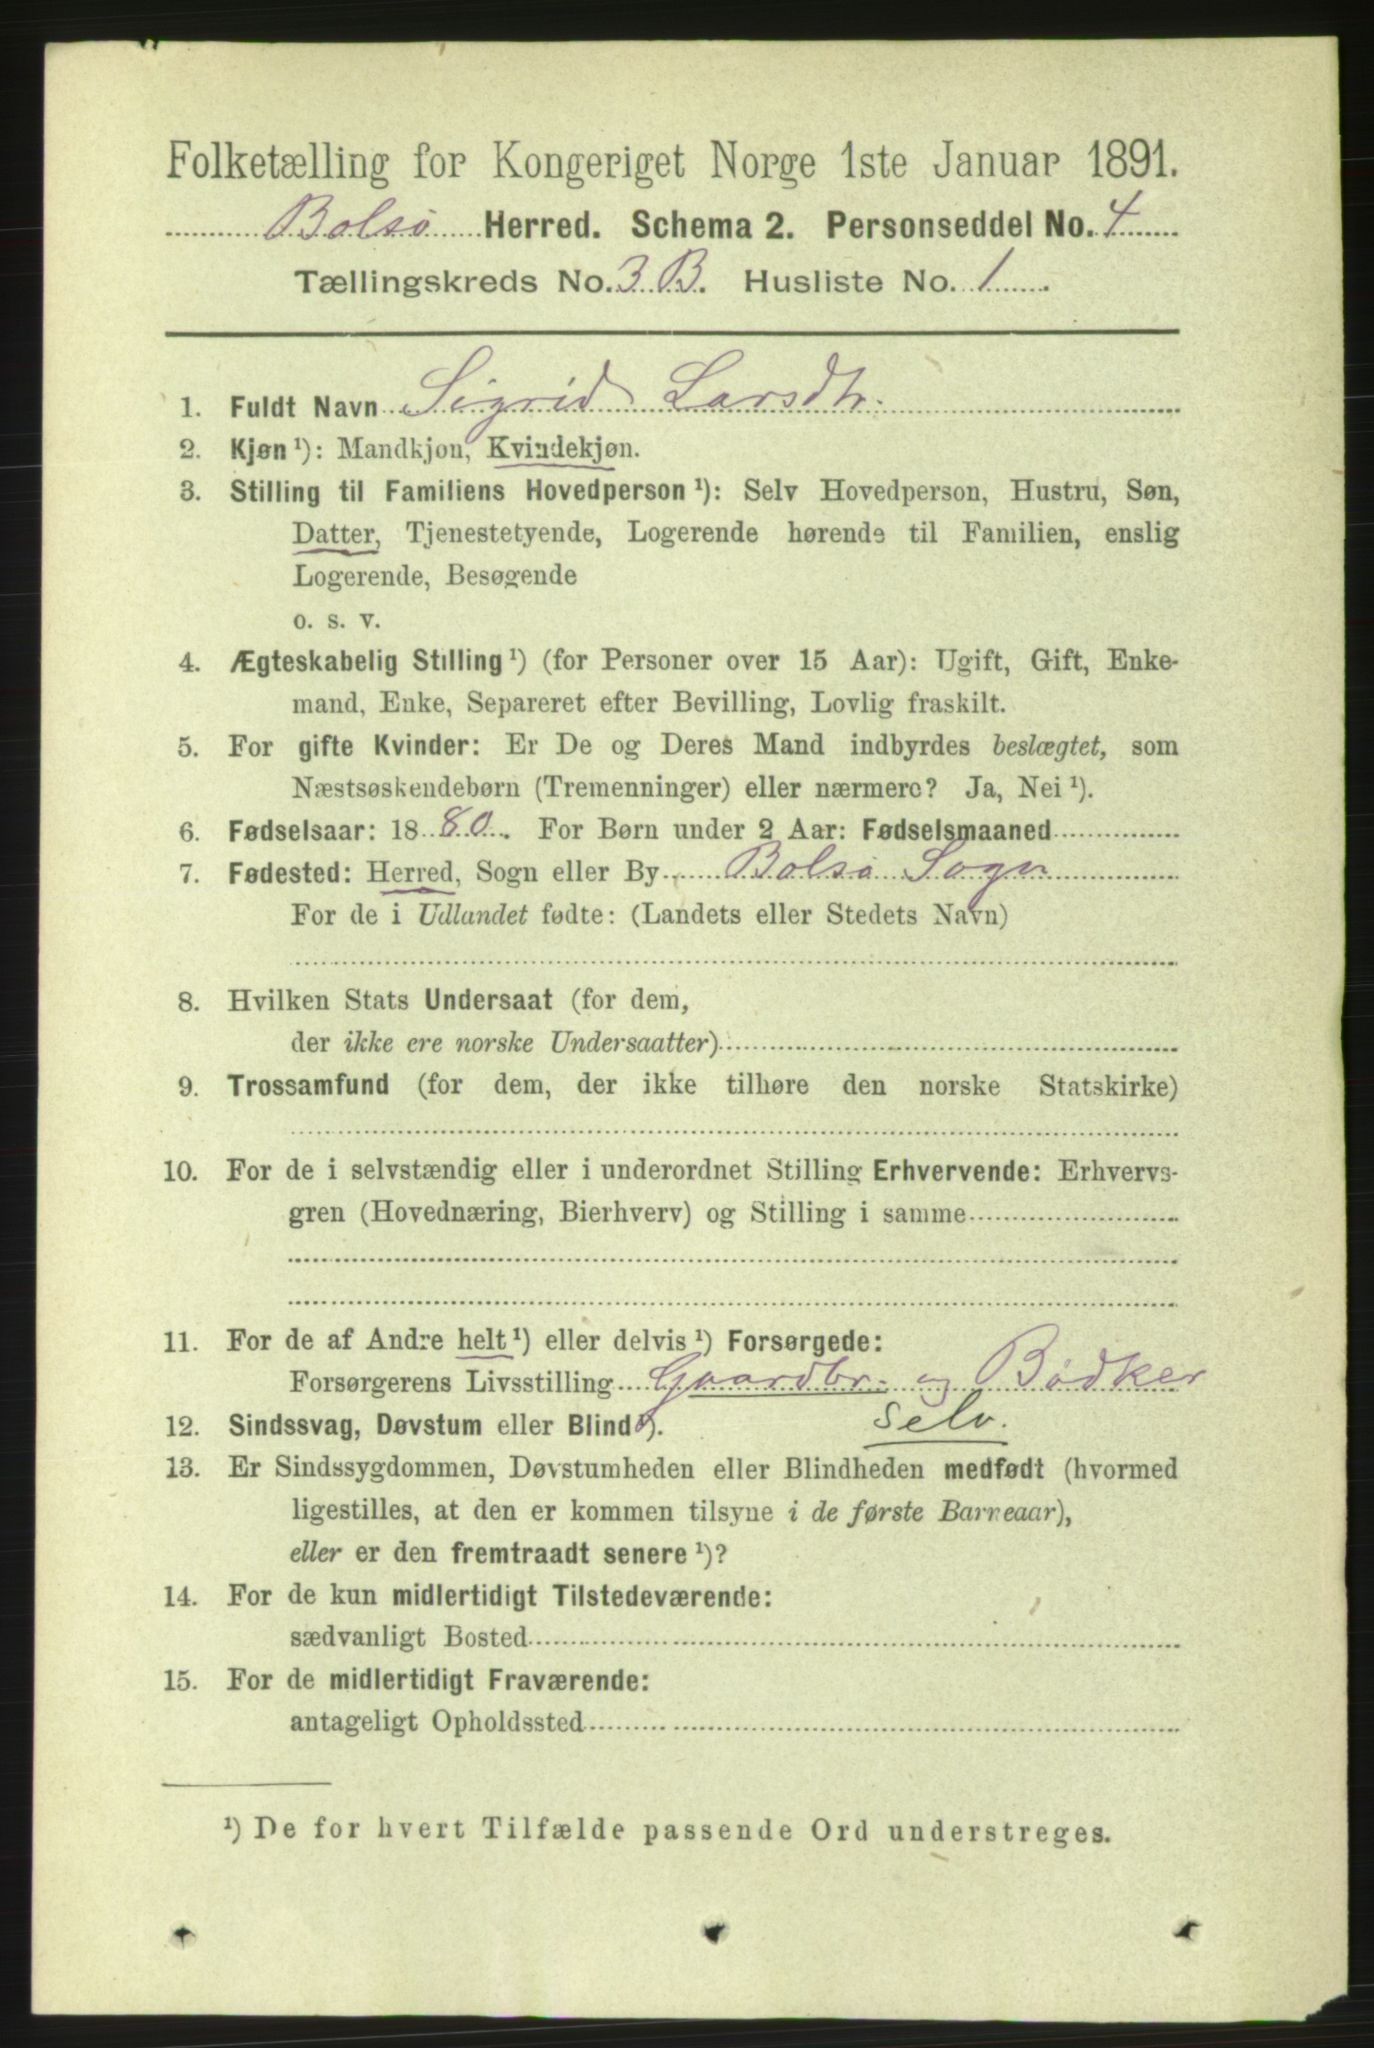 Folketælling for Kongeriget Norge 1ste Januar 1891.
Bolsø Herred. Schema 2. Personseddel No. 4
Tællingskreds No. 3 B. Husliste No. 1
1. Fuldt Navn Sigrid Larsdtr.
2. Kjøn ¹): Mandkjøn, Kvindekjøn.
3. Stilling til Familiens Hovedperson ¹): Selv Hovedperson, Hustru, Søn,
Datter, Tjenestetyende, Logerende hørende til Familien, enslig
Logerende, Besøgende
o. s. v.
4. Ægteskabelig Stilling ¹) (for Personer over 15 Aar): Ugift, Gift, Enke-
mand, Enke, Separeret efter Bevilling, Lovlig fraskilt.
5. For gifte Kvinder: Er De og Deres Mand indbyrdes beslægtet, som
Næstsøskendebørn (Tremenninger) eller nærmere? Ja, Nei ¹).
6. Fødselsaar: 1880. For Børn under 2 Aar: Fødselsmaaned
7. Fødested: Herred, Sogn eller By Bolsø Sogn
For de i Udlandet fødte: (Landets eller Stedets Navn)
8. Hvilken Stats Undersaat (for dem,
der ikke ere norske Undersaatter)
9. Trossamfund (for dem, der ikke tilhøre den norske Statskirke)
10. For de i selvstændig eller i underordnet Stilling Erhvervende: Erhvervs-
gren (Hovednæring, Bierhverv) og Stilling i samme
11. For de af Andre helt ¹) eller delvis ¹) Forsørgede:
Forsørgerens Livsstilling Gaardbr. og Bødker
selv.
12. Sindssvag, Døvstum eller Blind ¹).
13. Er Sindssygdommen, Døvstumheden eller Blindheden medfødt (hvormed
ligestilles, at den er kommen tilsyne i de første Barneaar),
eller er den fremtraadt senere ¹)?
14. For de kun midlertidigt Tilstedeværende:
sædvanligt Bosted
15. For de midlertidigt Fraværende:
antageligt Opholdssted
¹) De for hvert Tilfælde passende Ord understreges.